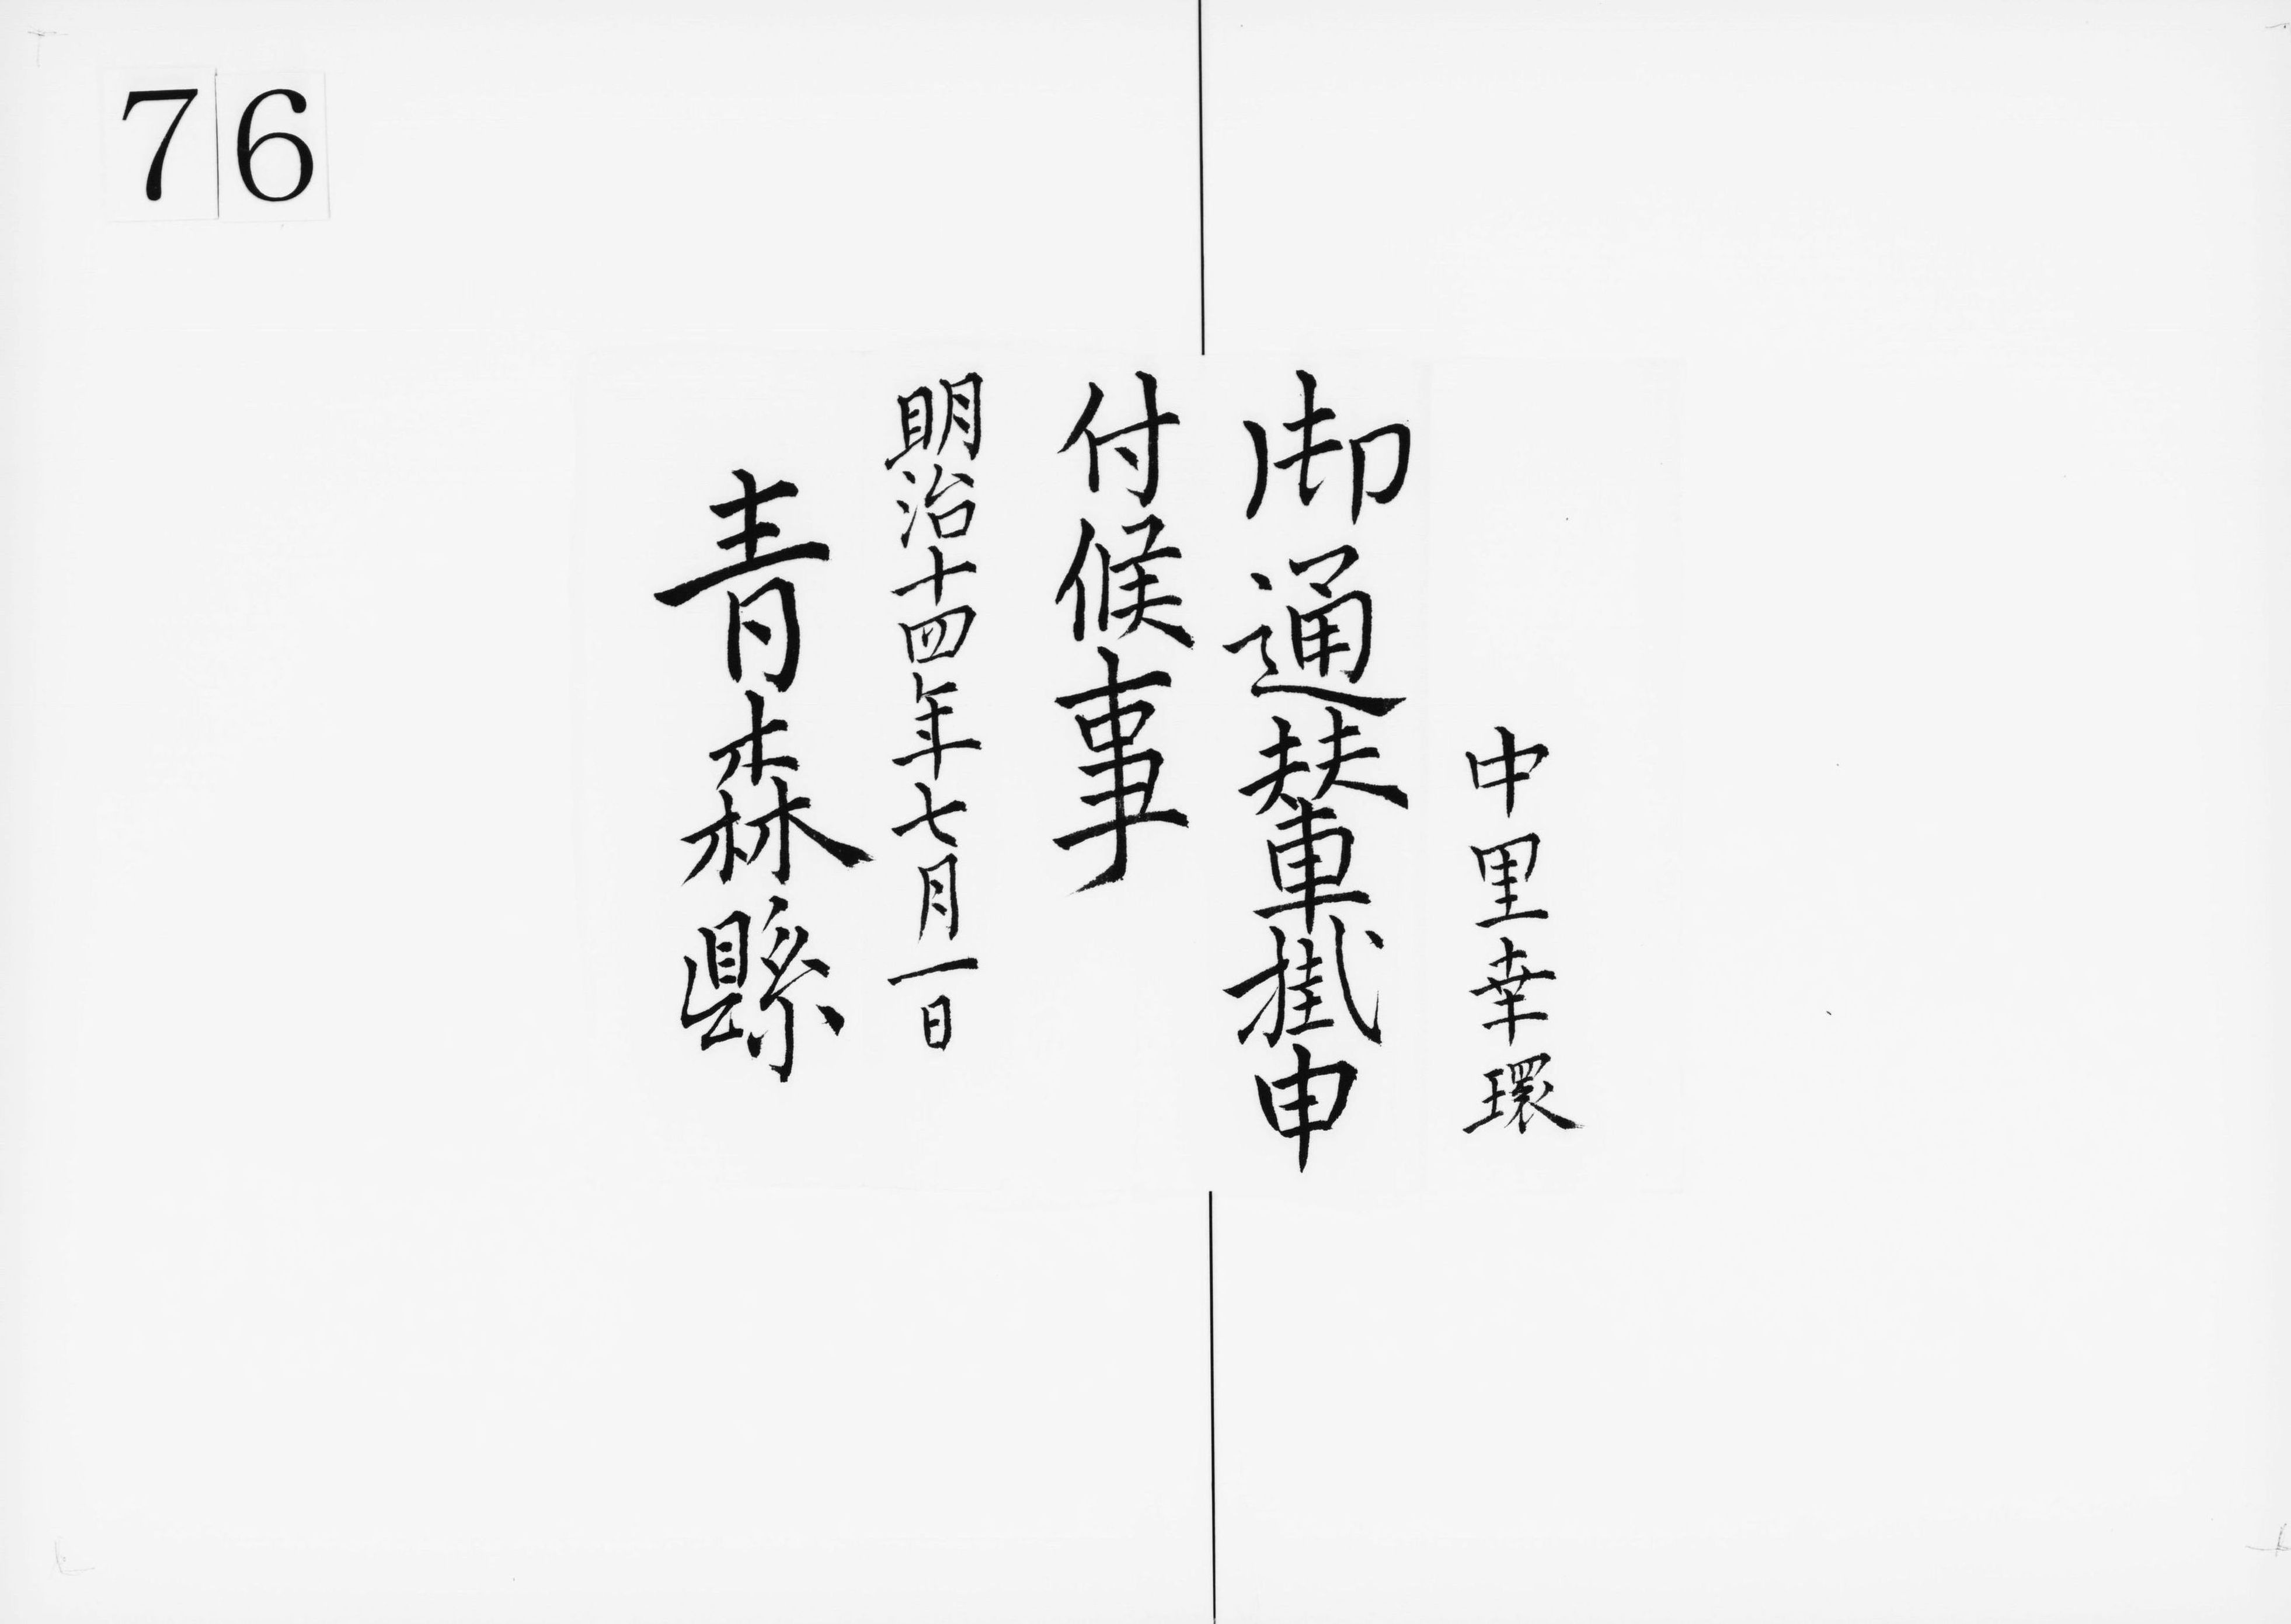 76
中里幸環
御通輦掛申
付候事
明治十四年七月一日
青森縣